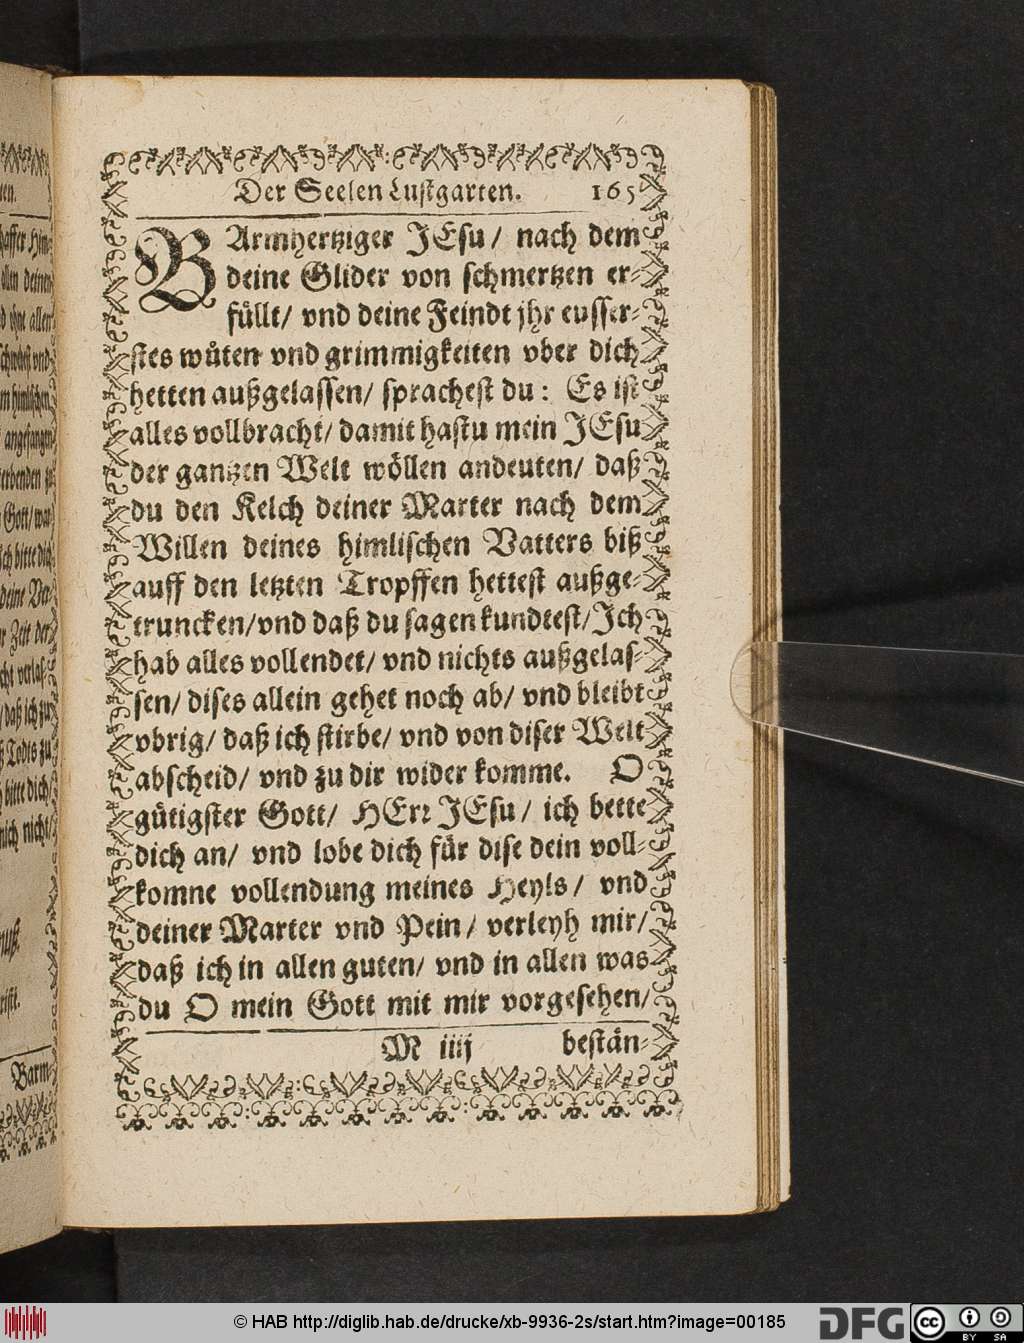 Der Seelen Lustgarten. 165
BArmhertziger JEsu / nach dem
deine Glider von schmertzen er-
füllt / vnd deine Feindt jhr eusser-
stes wüten vnd grimmigkeiten vber dich
hetten außgelassen / sprachest du : Es ist
alles vollbracht / damit hastu mein JEsu
der gantzen Welt wöllen andeuten / daß
du den Kelch deiner Marter nach dem
Willen deines himlischen Vatters biß
auff den letzten Tropffen hettest außge-
truncken / vnd daß du sagen kundtest / Ich
hab alles vollendet / vnd nichts außgelas-
sen / dises allein gehet noch ab / vnd bleibt
vbrig / daß ich stirbe / vnd von diser Welt
abscheid / vnd zu dir wider komme. O
gütigster Gott / HErr JEsu / ich bette
dich an / vnd lobe dich für dise dein voll-
komne vollendung meines Heyls / vnd
deiner Marter vnd Pein / verleyh mir /
daß ich in allen guten / vnd in allen was
du O mein Gott mit mir vorgesehen /
M iiij bestän-
haffer Him-
allen deinen
d ohne allen
schwöst vnd
m himlischen
angefangen
erbenden zu
Gott / was
ich bitte dich
deine Ver-
r Zeit der
cht verlas-
/ daß ich zu
ß Todts zu
bitte dich /
mich nicht /
Barm-
© HAB http://diglib.hab.de/drucke/xb-9936-2s/start.htm?image=00185
DFG
cc
BY SA